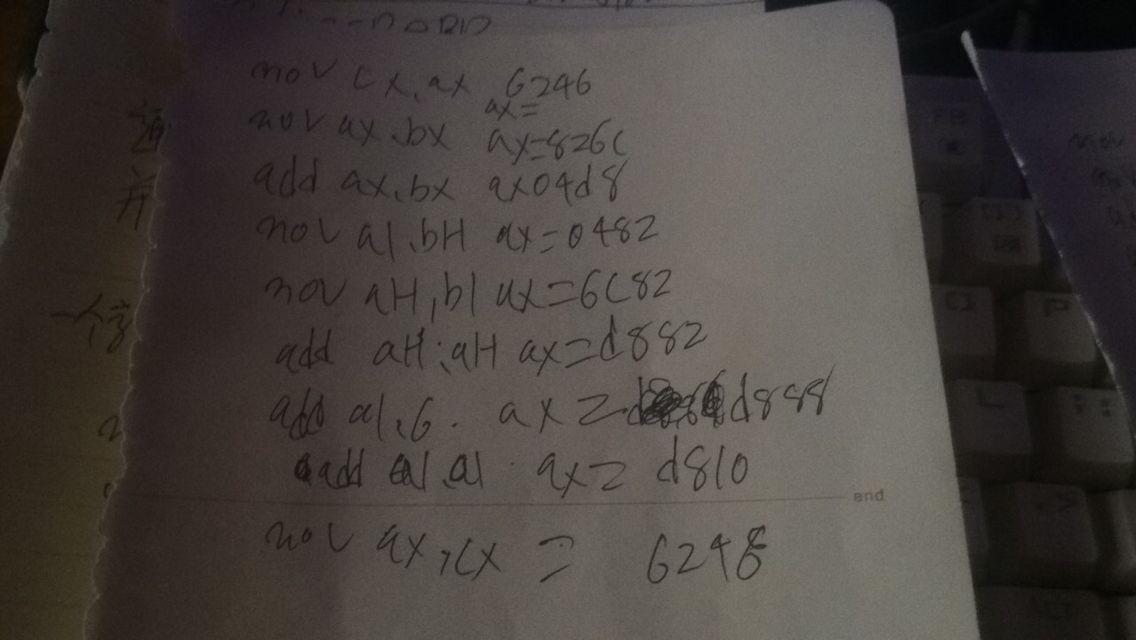 mov cx,ax 6246
ax=
mov ax,bx ax=826C
add ax,bx ax04d8
mov al,bH ax=0482
mov aH,bl ax=6C82
add aH,aH ax=d882
add al,6. ax= d888
add al,al ax= d810
end
mov ax,cx = 6246
一个字